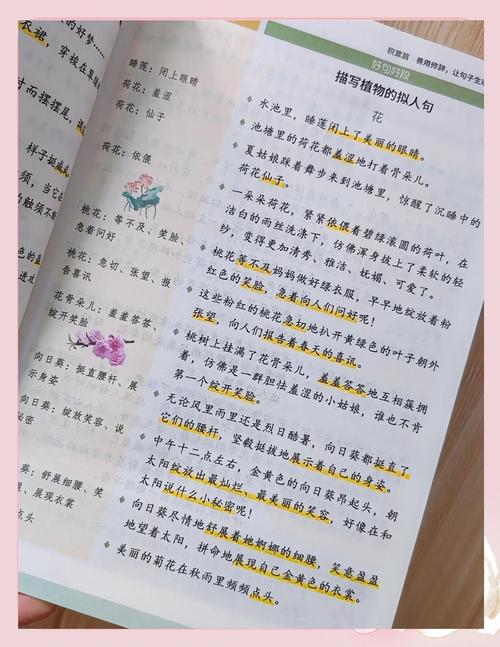 的好梦…
衣裙，穿梭在集
时而摆摆尾，
样子挺
须，当它
的触须不
睡莲：闭上眼睛
荷花：羞涩
荷花：仙子
荷花：依偎
桃花：等不及、笑脸、
急着问好
桃花：急切、张望、报
告喜讯
花骨朵儿：羞羞答答
绽开笑脸
向日葵：挺直腰杆、展
示身姿
向日葵：绽放笑容、说
秘密
：舒展细腰、笑
、展现衣裳
点头
积累篇 善用修辞，让句子生
好句好段
描写植物的拟人句
花
水池里，睡莲闭上了美丽的眼睛。
池塘里的荷花都羞涩地打着骨朵儿。
夏姑娘踩着舞步来到池塘里，惊醒了沉睡中的
荷花仙子。
一朵朵荷花，紧紧依偎着碧绿滚圆的荷叶，在
洁白的雨丝洗涤下，仿佛浑身披上了柔软的轻
纱，变得更加清秀、雅洁、妩媚、可爱了。
桃花等不及妈妈做好绿衣服，早早地绽放着粉
红色的笑脸，急着向人们问好呢！
这些粉红的桃花急切地扒开黄绿色的叶子朝外
张望，向人们报告着春天的喜讯。
桃树上挂满了花骨朵儿，羞羞答答地互相簇拥
着，仿佛是一群胆怯羞涩的小姑娘，谁也不肯
第一个绽开笑脸。
无论风里雨里还是烈日酷暑，向日葵都挺直了
它们的腰杆，坚毅挺拔地展示着自己的身姿。
中午十二点左右，金黄色的向日葵昂起头，朝
太阳绽放出最灿烂、最美丽的笑容，好像在和
太阳说什么小秘密呢！
向日葵尽情地舒展着她婀娜的细腰，笑意盈盈
地望着太阳，拼命地展现自己金黄色的衣裳。
美丽的菊花在秋雨里频频点头。